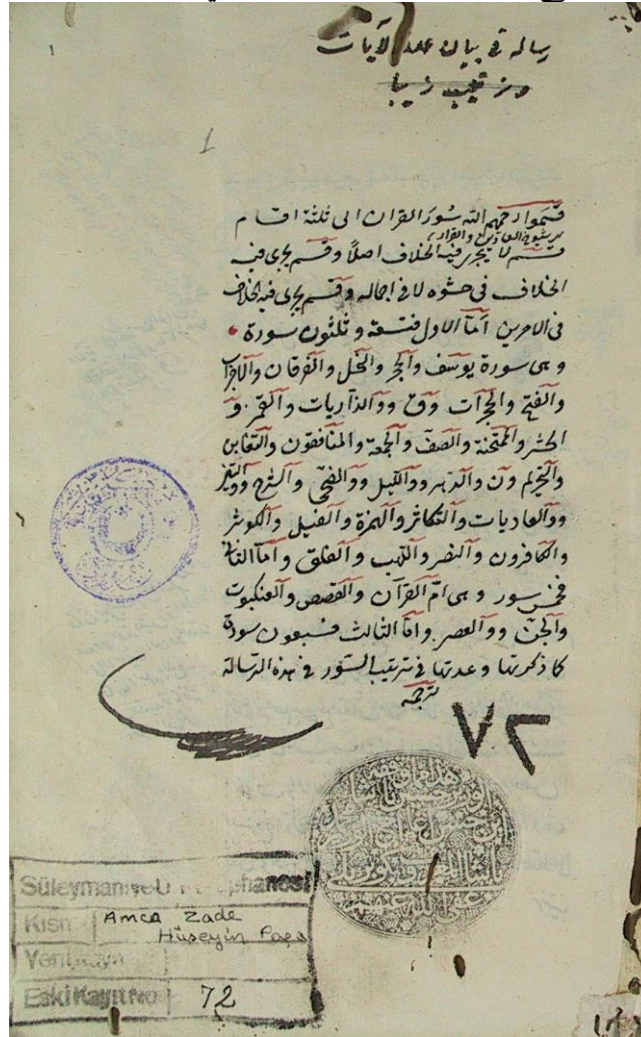 رساله في بيان عدد الآيات
1
قسّموا رحمهم الله سُورَ القرآن الى ثلثة اقسام
قسم لا يجرى فيه الخلاف اصلاً وقسم يجرى فيه
الخلاف فى حشوه لا فى اجماله وقسم يجرى فيه الخلاف
فى الامرين أمّا الاول فتسعة وثلثون سورة
وهى سورة يوسف والحجر والنحل والفرقان والاحزاب
والفتح والحجرات وق ووالذاريات والقمر و
الحشر والممتحنة والصف والجمعة والمنافقون والتغابن
والتحريم ون والدهر ووالليل ووالضحى والشرح ووالتين
ووالعاديات والتكاثر والهمزة والفيل والكوثر
والكافرون والنصر واللهب والفلق وأمّا الثانى
فخمس سور وهى امّ القرآن والقصص والعنكبوت
والجنّ ووالعصر وأمّا الثالث فسبعون سورة
كما ذكرتها وعدتها فى ترتيب السّور فى هذه الرسالة
ترجمه
٧٢
Süleymaniye U. Kütüphanesi
Kısmı Amca Zade
Hüseyin Paşa
Yeni Kayıt
Eski Kayıt No 72